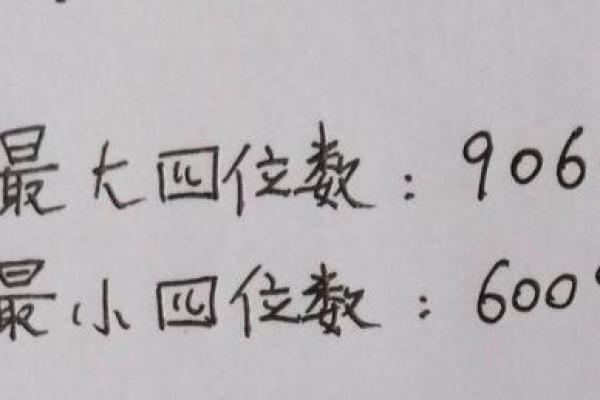 最大四位数：906
最小四位数：600